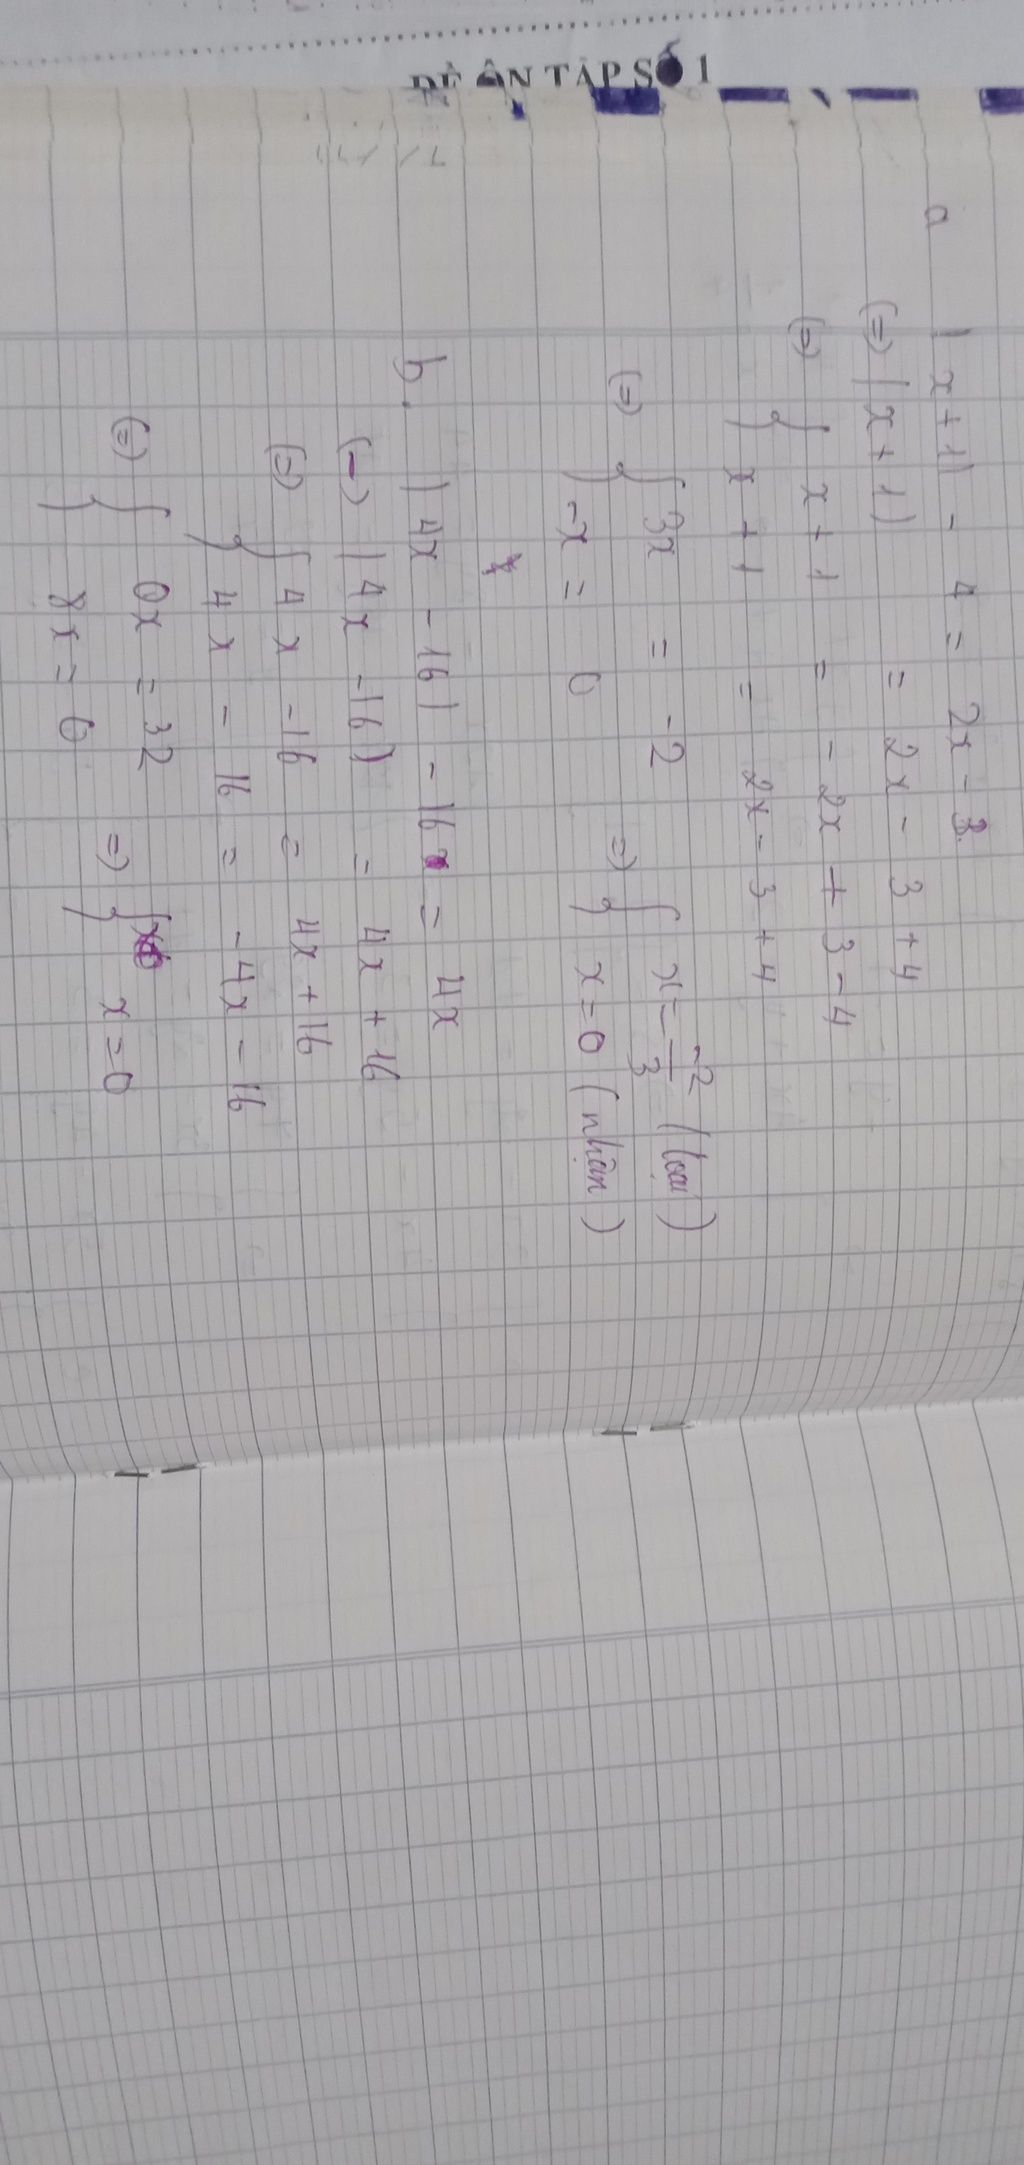 ĐỀ ÔN TẬP SỐ 1
a | x + 1 | - 4 = 2x - 3
(=) | x + 1 | = 2x - 3 + 4
(=) { x + 1 = - 2x + 3 - 4
{ x + 1 = 2x - 3 + 4
(=) { 3x = -2 => { x = -2/3 (loại)
{ -x = 0 { x = 0 (nhận)
b. | 4x - 16 | - 16 = 4x
(=) | 4x - 16 | = 4x + 16
(=) { 4x - 16 = 4x + 16
{ 4x - 16 = - 4x - 16
(=) { 0x = 32 => {
{ 8x = 0 { x = 0